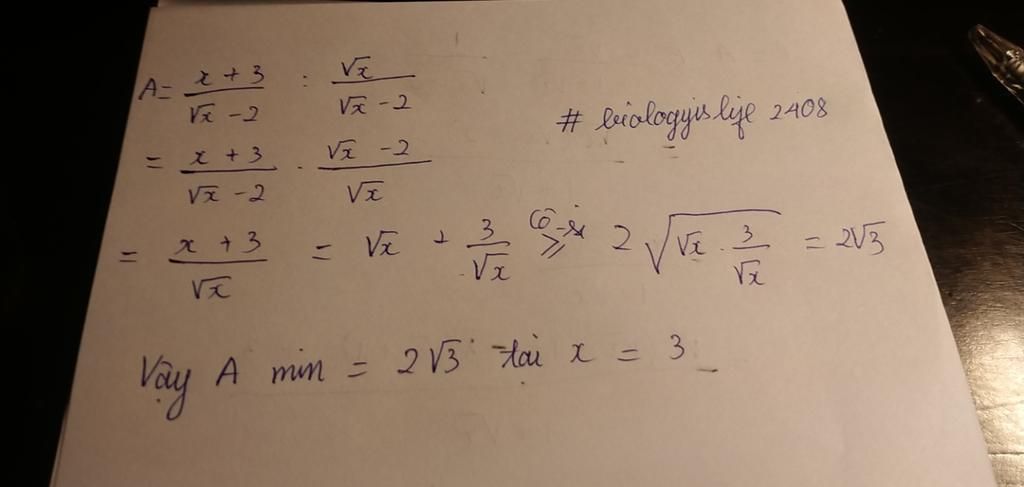 A = \frac{x + 3}{\sqrt{x} - 2} : \frac{\sqrt{x}}{\sqrt{x} - 2}
# biologyislife 2408
= \frac{x + 3}{\sqrt{x} - 2} . \frac{\sqrt{x} - 2}{\sqrt{x}}
= \frac{x + 3}{\sqrt{x}} = \sqrt{x} + \frac{3}{\sqrt{x}} \overset{Cô-si}{\geqslant} 2 \sqrt{\sqrt{x} . \frac{3}{\sqrt{x}}} = 2\sqrt{3}
Vậy A min = 2\sqrt{3} tại x = 3